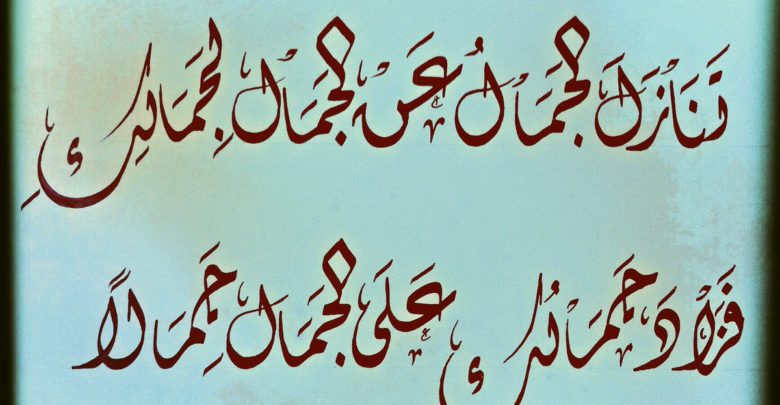 تَنَازَلَ الجَمَالُ عَنْ الجَمَالِ لِجَمَالِكِ
فَزَادَ جَمَالُكِ عَلَى الجَمَالِ جَمَالاً